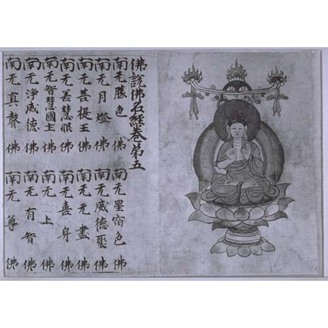 佛說佛名經卷第五
南无勝色佛 南无星宿色佛
南无月燈佛 南无威德聚佛
南无菩提王佛 南无无盡佛
南无善慧眼佛 南无善身佛
南无智慧國土佛 南无上佛
南无淨威德佛 南无有智佛
南无真聲佛 南无尊佛